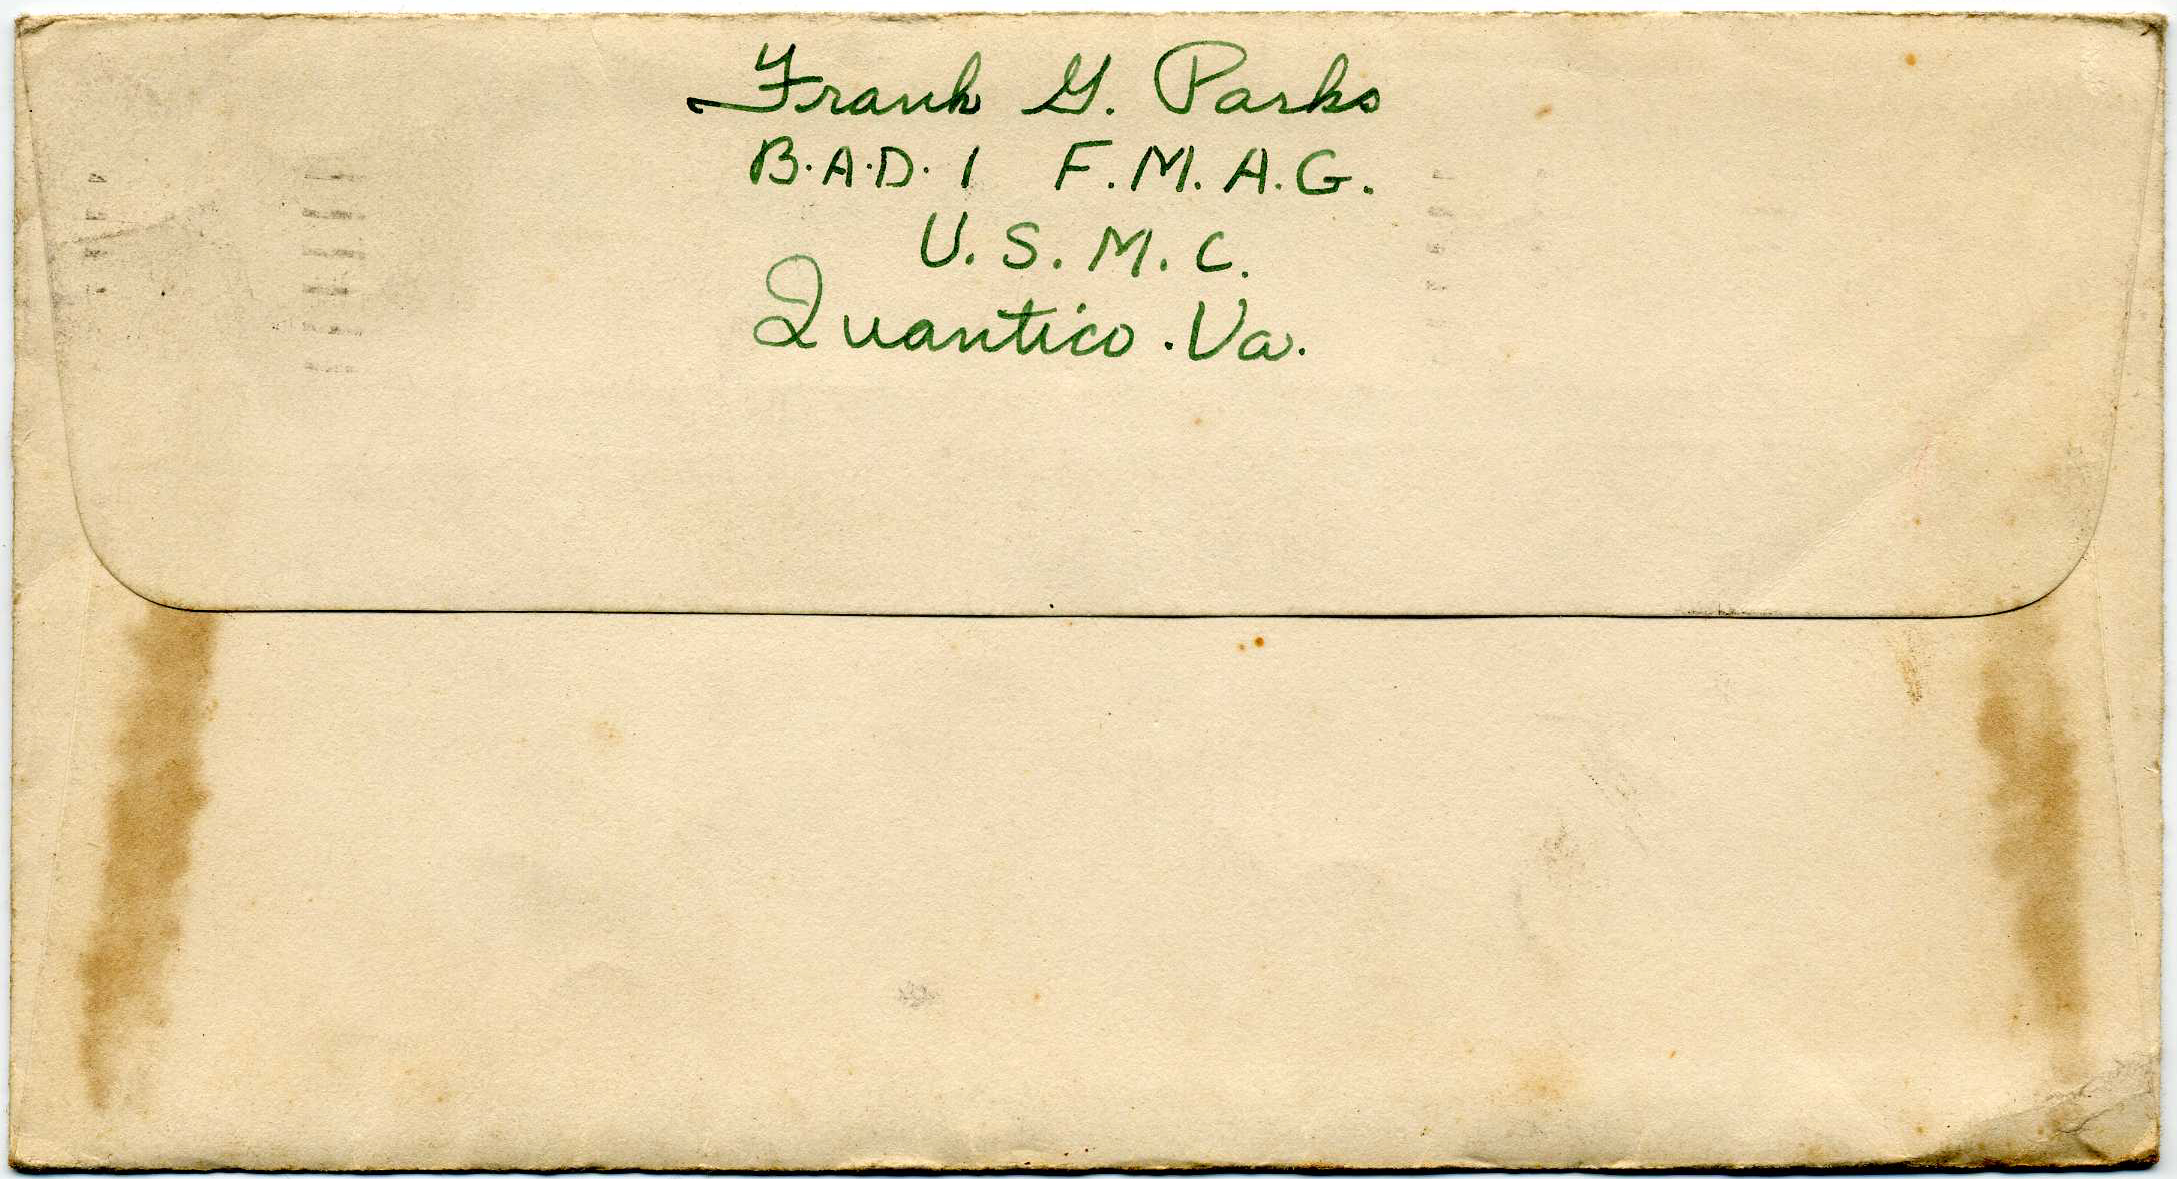 Frank G. Parks
B.A.D. 1 F.M.A.G.
U.S.M.C.
Quantico. Va.